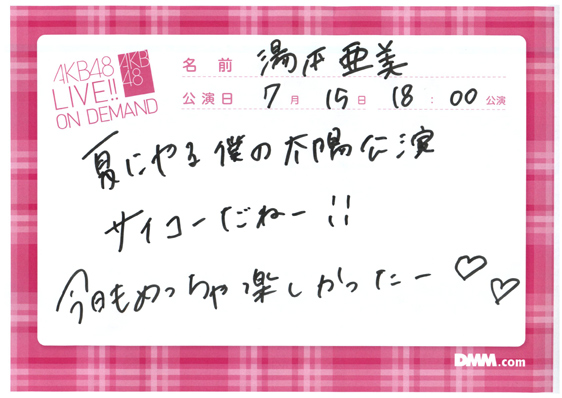 AKB48
LIVE!!
ON DEMAND
AKB
48
名前 湯本亜美
公演日 7月 15日 18:00公演
夏にやる僕の太陽公演
サイコーだねー!!
今日もめっちゃ楽しかったー♡♡
DMM.com